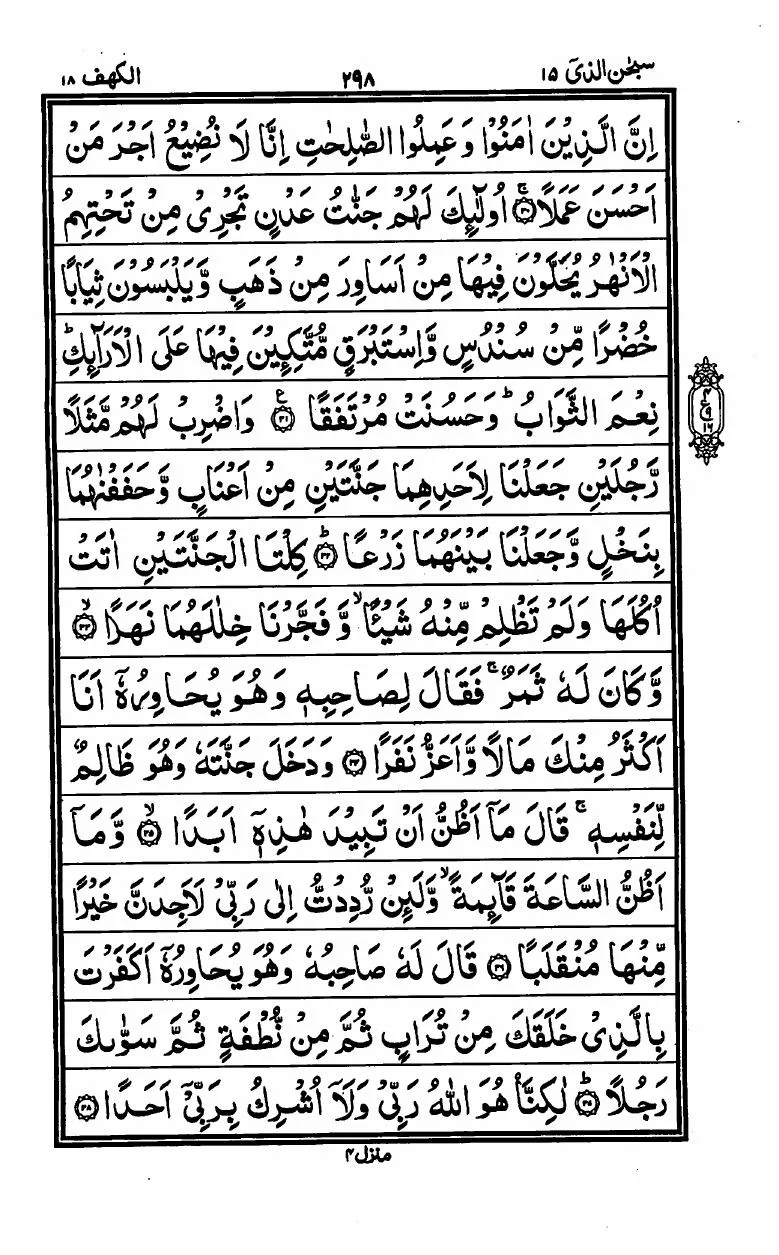 سبحٰن الذیٓ ١٥ ٢٩٨ الکهف ١٨
اِنَّ الَّذِيْنَ اٰمَنُوْا وَعَمِلُوا الصّٰلِحٰتِ اِنَّا لَا نُضِيْعُ اَجْرَ مَنْ
اَحْسَنَ عَمَلًا ۚ﴿٣٠﴾ اُولٰٓئِكَ لَهُمْ جَنّٰتُ عَدْنٍ تَجْرِيْ مِنْ تَحْتِهِمُ
الْاَنْهٰرُ يُحَلَّوْنَ فِيْهَا مِنْ اَسَاوِرَ مِنْ ذَهَبٍ وَّيَلْبَسُوْنَ ثِيَابًا
خُضْرًا مِّنْ سُنْدُسٍ وَّاِسْتَبْرَقٍ مُّتَّكِـِٕيْنَ فِيْهَا عَلَى الْاَرَآئِكِ ؕ
نِعْمَ الثَّوَابُ ؕ وَحَسُنَتْ مُرْتَفَقًا ﴿٣١﴾ ع وَاضْرِبْ لَهُمْ مَّثَلًا
ع ٤ ٩ ١٦
رَّجُلَيْنِ جَعَلْنَا لِاَحَدِهِمَا جَنَّتَيْنِ مِنْ اَعْنَابٍ وَّحَفَفْنٰهُمَا
بِنَخْلٍ وَّجَعَلْنَا بَيْنَهُمَا زَرْعًا ؕ﴿٣٢﴾ كِلْتَا الْجَنَّتَيْنِ اٰتَتْ
اُكُلَهَا وَلَمْ تَظْلِمْ مِّنْهُ شَيْـًٔا ۙ وَّفَجَّرْنَا خِلٰلَهُمَا نَهَرًا ۙ﴿٣٣﴾
وَّكَانَ لَهٗ ثَمَرٌ ۚ فَقَالَ لِصَاحِبِهٖ وَهُوَ يُحَاوِرُهٗٓ اَنَا
اَكْثَرُ مِنْكَ مَالًا وَّاَعَزُّ نَفَرًا ﴿٣٤﴾ وَدَخَلَ جَنَّتَهٗ وَهُوَ ظَالِمٌ
لِّنَفْسِهٖ ۚ قَالَ مَآ اَظُنُّ اَنْ تَبِيْدَ هٰذِهٖٓ اَبَدًا ۙ﴿٣٥﴾ وَّمَآ
اَظُنُّ السَّاعَةَ قَآئِمَةً ۙ وَّلَئِنْ رُّدِدْتُّ اِلٰى رَبِّيْ لَاَجِدَنَّ خَيْرًا
مِّنْهَا مُنْقَلَبًا ﴿٣٦﴾ قَالَ لَهٗ صَاحِبُهٗ وَهُوَ يُحَاوِرُهٗٓ اَكَفَرْتَ
بِالَّذِيْ خَلَقَكَ مِنْ تُرَابٍ ثُمَّ مِنْ نُّطْفَةٍ ثُمَّ سَوّٰىكَ
رَجُلًا ؕ﴿٣٧﴾ لٰكِنَّا۠ هُوَ اللّٰهُ رَبِّيْ وَلَآ اُشْرِكُ بِرَبِّيْٓ اَحَدًا ﴿٣٨﴾
منزل ٤